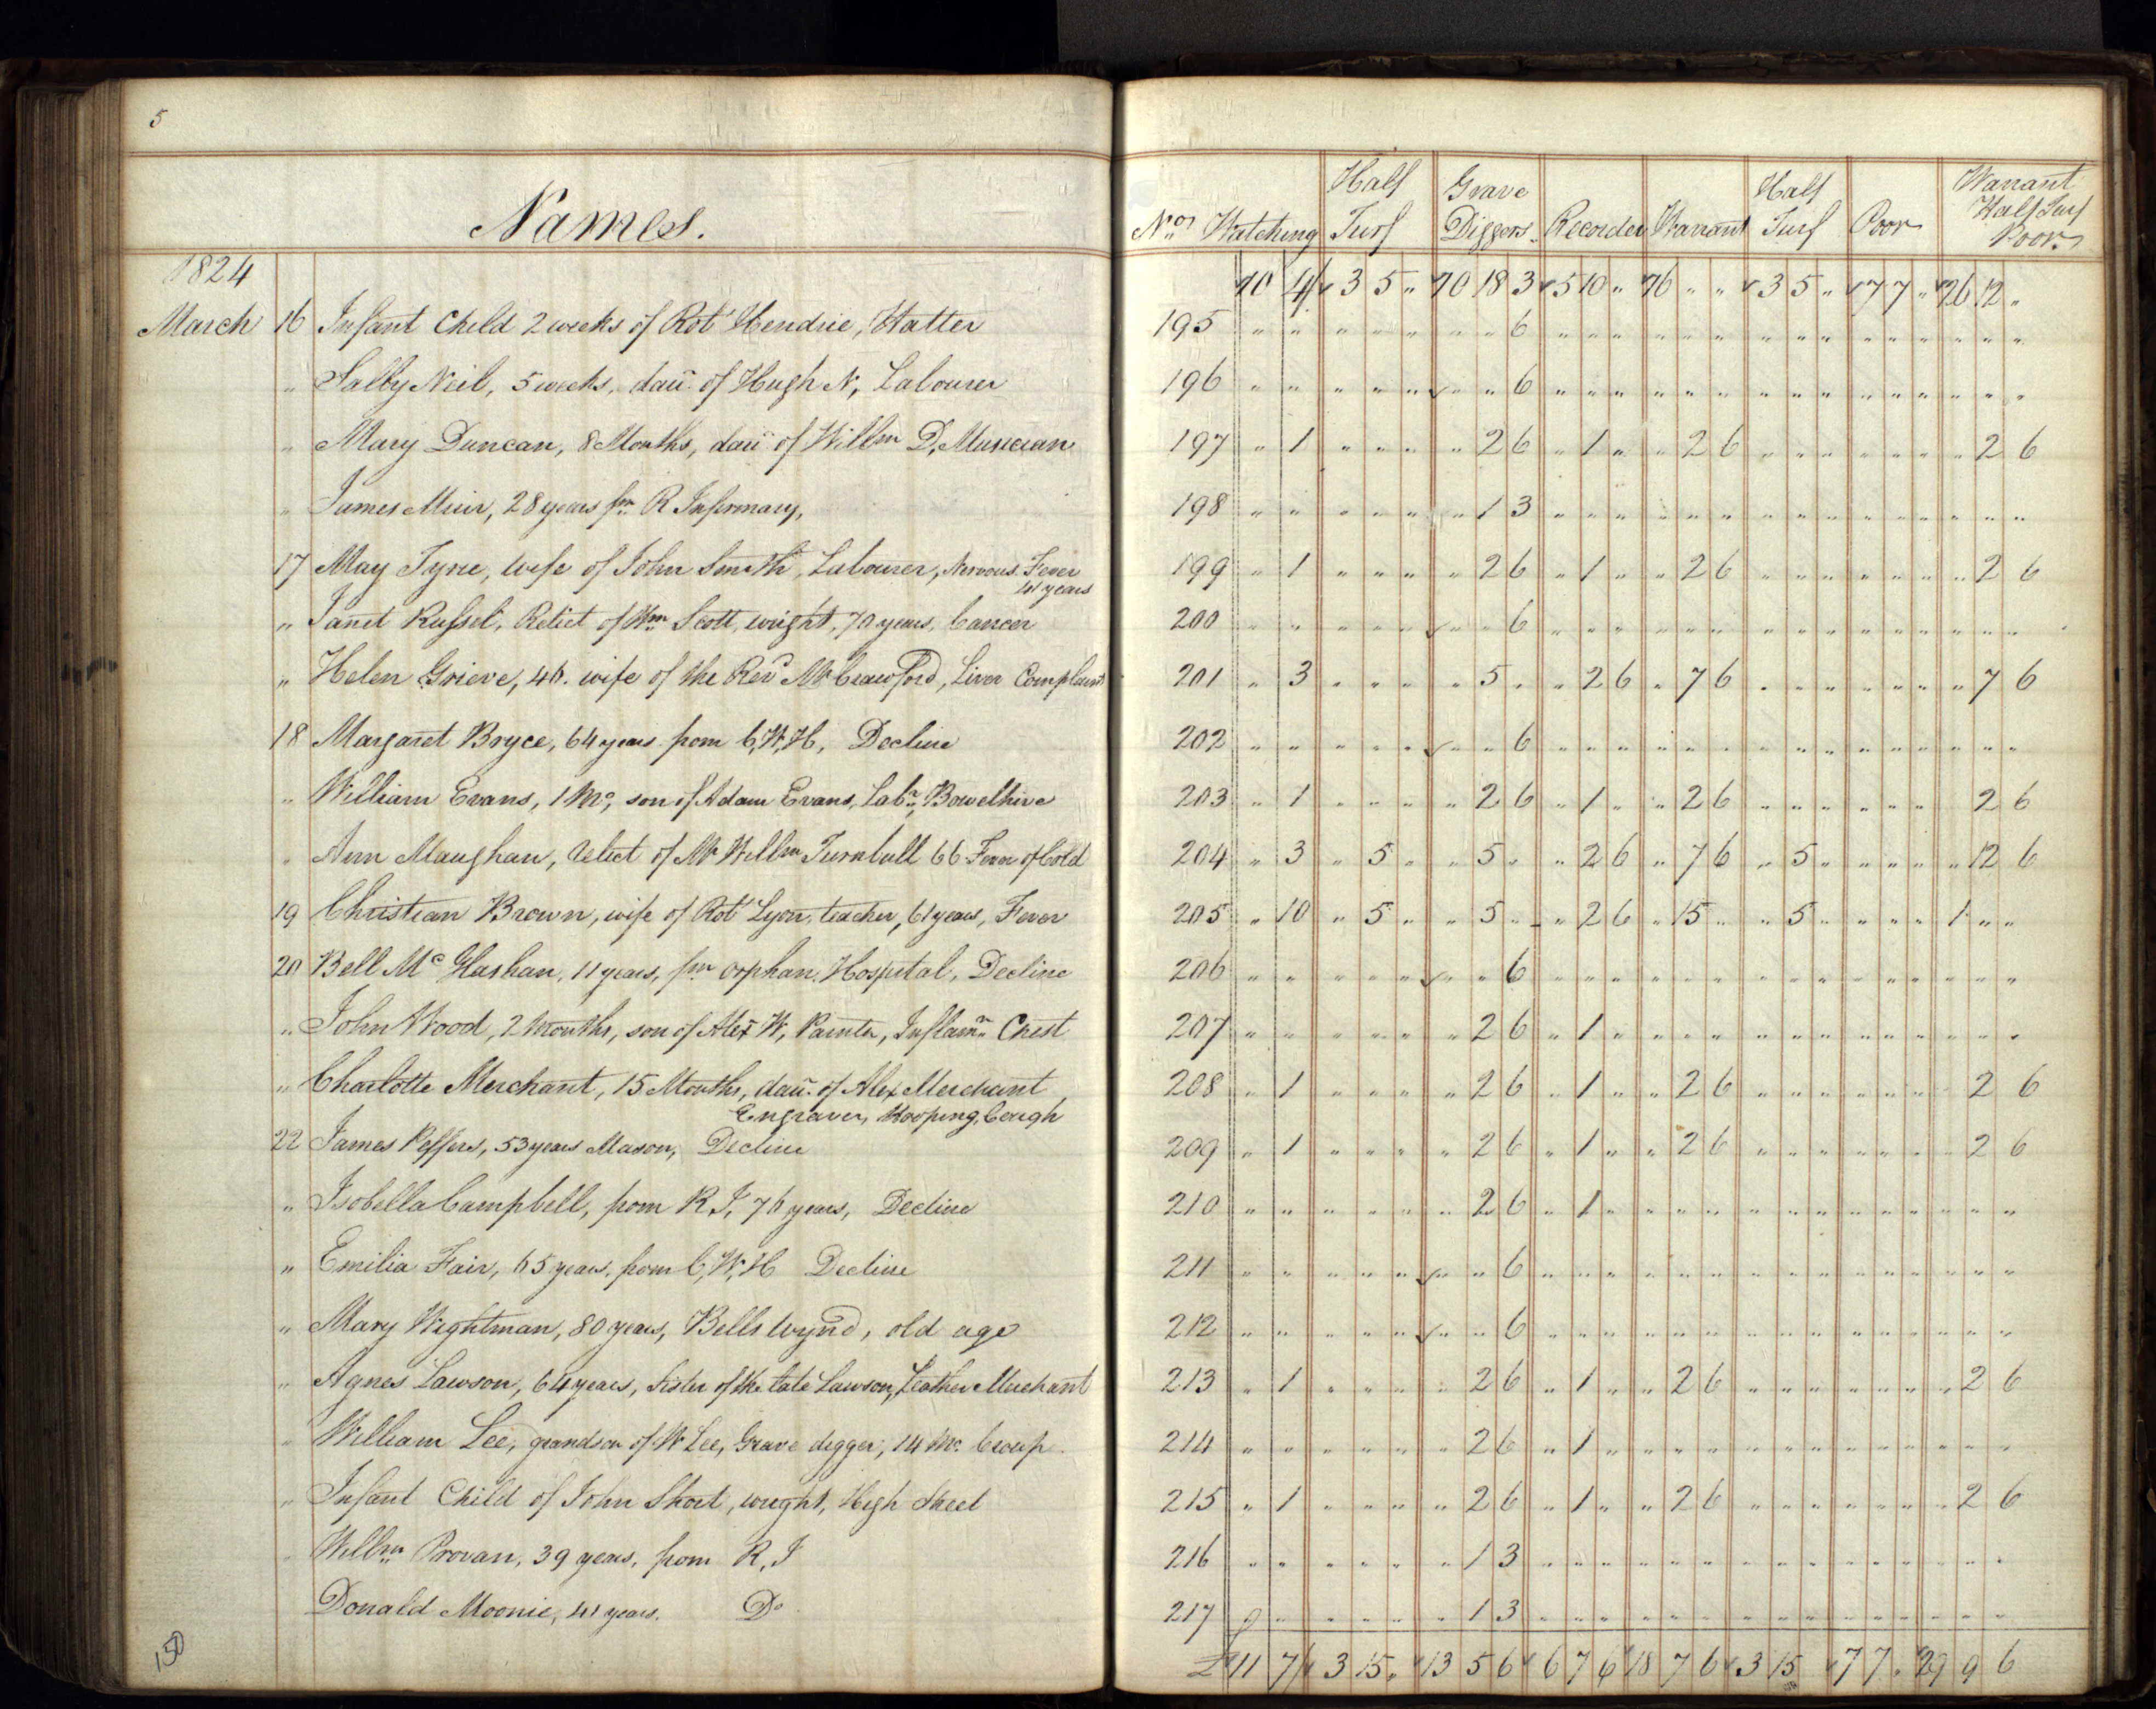 5
Names.
1824
March 16 Infant Child 2 weeks of Rot Hendrie, Hatter
" Sally Neil, 5 weeks, dau. of Hugh N, Labourer
" Mary Duncan, 8 Months, dau. of Willm D, Musician
" James Muir, 28 years fm. R Infirmary,
17 May Tyrie, wife of John Smith, Labourer, Nervous Fever
41 years
" Janet Russel, Relict of Wm Scott, wright, 70 years, Cancer
" Helen Grieve, 46. wife of the Revd Mr Crawford, Liver Complaint
18 Margaret Bryce, 64 years from C,W,H, Decline
" William Evans, 1 Mo, son of Adam Evans, Labr, Bowelhive
" Ann Maughan, Relict of Mr Willm Turnbull 66 Fever of Cold
19 Christian Brown, wife of Rot Lyon, teacher, 61 years, Fever
20 Bell Mc Glashan, 11 years, fm orphan Hospital, Decline
" John Wood, 2 Months, son of Alexr W, Painter, Inflamn Chest
" Charlotte Merchant, 15 Months, dau. of Alex Merchant
Engraver, Hooping Cough
22 James Peffers, 53 years Mason, Decline
" Isobella Campbell, from R,I, 76 years, Decline
" Emilia Fair, 65 years, from C,W,H Decline
" Mary Wightman, 80 years, Bells Wynd, old age
" Agnes Lawson, 64 years, Sister of the late Lawson, Leather Merchant
" William Lee, grandson of W Lee, Grave digger, 14 Mo. Croup
" Infant Child of John Short, wright, High Street
" Willm Provan, 39 years, from R,I
Donald Moonie, 41 years. Do
150
Nos Watching Half Turf Grave Diggers Recorder Warrant Half Turf Poor Warrant Half Turf Poor
10 4 3 5 " 10 18 3 5 10 " 16 " " 3 5 " 7 7 " 26 12 "
195 " " " " " " " 6 " " " " " " " " " " " " " " "
196 " " " " " " " 6 " " " " " " " " " " " " " " "
197 " 1 " " " " 2 6 " 1 " " 2 6 " " " " " " " 2 6
198 " " " " " " 1 3 " " " " " " " " " " " " " " "
199 " 1 " " " " 2 6 " 1 " " 2 6 " " " " " " " 2 6
200 " " " " " " " 6 " " " " " " " " " " " " " " "
201 " 3 " " " " 5 " " 2 6 " 7 6 " " " " " " " 7 6
202 " " " " " " " 6 " " " " " " " " " " " " " " "
203 " 1 " " " " 2 6 " 1 " " 2 6 " " " " " " 2 6
204 " 3 " 5 " " 5 " " 2 6 " 7 6 " 5 " " " " " 12 6
205 " 10 " 5 " " 5 " " 2 6 " 15 " " 5 " " " " 1 " "
206 " " " " " " " 6 " " " " " " " " " " " " " " "
207 " " " " " " 2 6 " 1 " " " " " " " " " " " " "
208 " 1 " " " " 2 6 " 1 " " 2 6 " " " " " " " 2 6
209 " 1 " " " " 2 6 " 1 " " 2 6 " " " " " " " 2 6
210 " " " " " " 2 6 " 1 " " " " " " " " " " " " "
211 " " " " " " " 6 " " " " " " " " " " " " " " "
212 " " " " " " " 6 " " " " " " " " " " " " " " "
213 " 1 " " " " 2 6 " 1 " " 2 6 " " " " " " " 2 6
214 " " " " " " 2 6 " 1 " " " " " " " " " " " " "
215 " 1 " " " " 2 6 " 1 " " 2 6 " " " " " " " 2 6
216 " " " " " " 1 3 " " " " " " " " " " " " " " "
217 " " " " " 1 3 " " " " " " " " " " " " " " "
£ 11 7 3 15 " 13 5 6 6 7 6 18 7 6 3 15 7 7 " 29 9 6